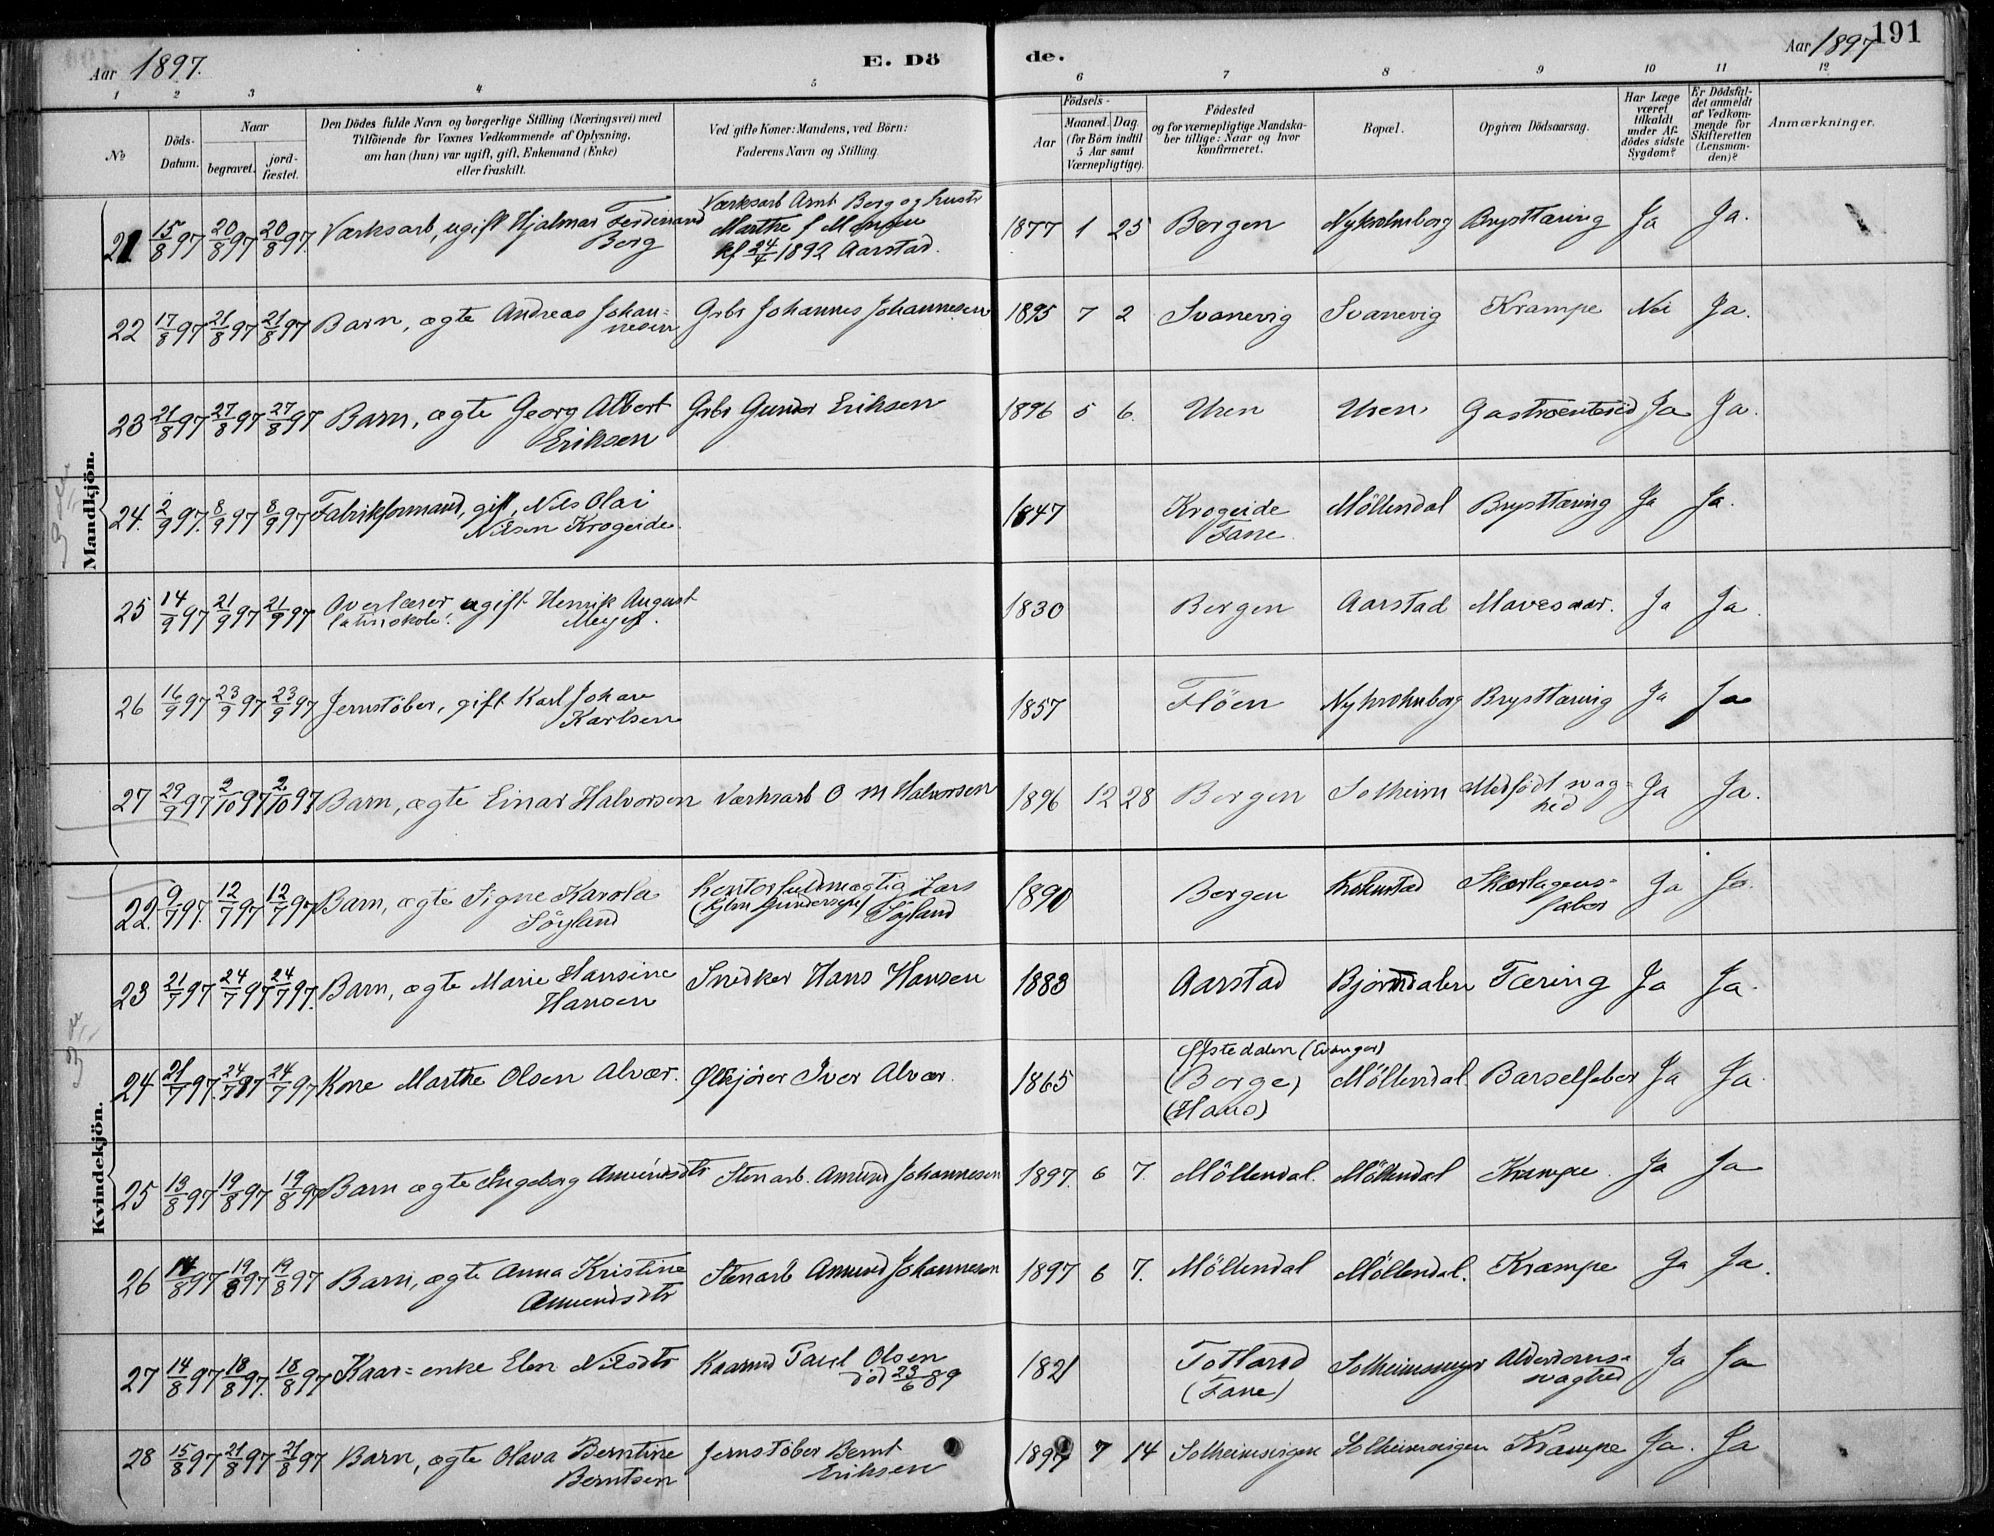 Aar 1897.
E. Dö
de.
Aar 1897
191
1 2 3 4 5 6 7 8 9 10 11 12
No
Döds-Datum.
Naar
begravet.
jord-fæstet.
Den Dödes fulde Navn og borgerlige Stilling (Næringsvei) med
Tilföiende for Voxnes Vedkommende af Oplysning,
om han (hun) var ugift, gift, Enkemand (Enke)
eller fraskilt.
Ved gifte Koner: Mandens, ved Börn:
Faderens Navn og Stilling.
Födsels-
Aar
Maaned. Dag.
(for Börn indtil 5 Aar samt Værnepligtige).
Födested
og for værnepligtige Mandska-
ber tillige: Naar og hvor
konfirmeret.
Bopæl.
Opgiven Dödsaarsag.
Har Læge været tilkaldt under Afdödes sidste Sygdom?
Er Dödsfaldet anmeldt af Vedkommende for Skifteretten (Lensmanden)?
Anmærkninger.
Mandkjön.
21 15/8 97 20/8 97 20/8 97. Værksarb, ugift Hjalmar Ferdinand Berg Værksarb Arnt Berg og hustr Marthe f M 24/4 1892 Aarstad. 1877 1 25 Bergen Nykrohnborg Brysttæring Ja Ja.
22 17/8 97 21/8 97 21/8 97 Barn, ægte Andreas Johan=nesen Grbr Johannes Johannesen 1895 7 2 Svanevig Svanevig Krampe Nei Ja.
23 21/8 97 27/8 97 27/8 97 Barn, ægte Georg Albert Eriksen Grbr Gunder Eriksen 1896 5 6. Uren Uren. Gastroenterid Ja Ja.
24. 2/9 97. 8/9 97 8/9 97 Fabrikformand, gift, Nils Olai Nilsen Krogeide 1847 Krogeide Fane. Möllendal Brysttæring Ja Ja.
25 14/9 97 21/9 97 21/9 97 Overlærer latinskole, ugift Henrik August Meyer. 1830 Bergen Aarstad Mavesaar. Ja Ja.
26 16/9 97 23/9 97 23/9 97 Jernstöber, gift Karl Johan Karlsen 1857 Flöen Nykrohnborg Brysttæring Ja Ja
27 29/9 97 2/10 97 2/10 97 Barn, ægte Einar Halvorsen Værksarb O M Halvorsen 1896 12 28 Bergen Solheim Medfödt svag=hed Ja Ja.
Kvindekjön.
22. 9/7 97. 12/7 97 12/7 97 Barn, ægte Signe Karola Söyland Kontorfuldmægtig Lars Söyland 1890 Bergen Kronstad Skarlagens=feber Ja Ja.
23 21/7 97 24/7 97 24/7 97. Barn, ægte Marie Hansine Hansen Snedker Hans Hansen 1883 Aarstad Björndalen Tæring Ja Ja.
24 21/7 97. 24/7 97 24/7 97 Kone Marthe Olsen Alvær. Ølkjörer Iver Alvær. 1865 (Evanger) (Berge) (Hans) Möllendal. Barselfeber Ja Ja.
25 13/8 97 19/8 97 19/8 97 Barn ægte Ingeborg Amundsdtr Stenarb. Amund Johannesen 1897. 6 7. Möllendal. Möllendal Krampe. Ja Ja
26 14/8 97 19/8 97 19/8 97 Barn, ægte Anna Kristine Amundsdtr Stenarb Amund Johannesen 1897 6 7. Möllendal Möllendal. Krampe Ja Ja.
27 14/8 97 18/8 97. 18/8 97 Kaar=enke Elen Nilsdtr Kaarmd Paul Olsen död 23/6 89 1821 Totland (Fane) Solheimsmyr Alderdoms=svaghed Ja Ja
28 15/8 97 21/8 97 21/8 97 Barn, ægte Olava Berntine Berntsen Jernstöber Bernt Eriksen 1897 7 14 Solheimsvigen Solheimsvigen Krampe Ja. Ja